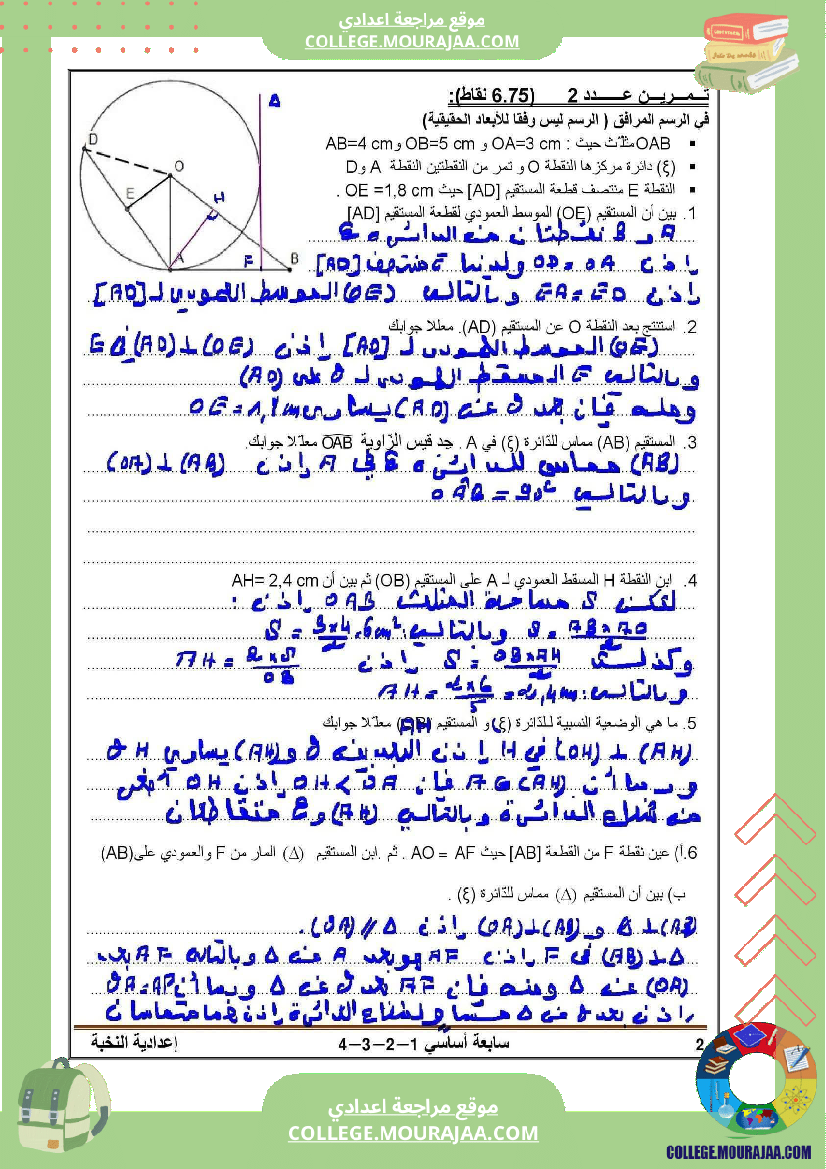 موقع مراجعة اعدادي
COLLEGE.MOURAJAA.COM
تـمـريـن عـــدد 2 (6.75 نقاط):
في الرسم المرافق ( الرسم ليس وفقا للأبعاد الحقيقية)
OAB مثلث حيث : OA=3 cm و OB=5 cm و AB=4 cm
(ξ) دائرة مركزها النقطة O و تمر من النقطتين النقطة A وD
النقطة E منتصف قطعة المستقيم [AD] حيث OE =1,8 cm .
Δ
D
O
E
H
A
F
B
1. بين أن المستقيم (OE) الموسط العمودي لقطعة المستقيم [AD]
A و B نقطتان من الدائرة
إذن OD = OA ولدينا E منتصف [AD]
إذن EA = ED وبالتالي (OE) الموسط العمودي لـ [AD]
2. استنتج بعد النقطة O عن المستقيم (AD). معللا جوابك
(OE) الموسط العمودي لـ [AD] إذن (OE)⊥(AD) في E
وبالتالي E المسقط العمودي لـ O على (AD)
ومنه فإن بعد O عن (AD) يساوي OE = 1,8 cm
3. المستقيم (AB) مماس للدّائرة (ξ) في A . جد قيس الزّاوية OAB معلّلا جوابك.
(AB) مماس للدائرة في A إذن (AB) ⊥ (OA)
وبالتالي OAB = 90°
4. ابن النقطة H المسقط العمودي لـ A على المستقيم (OB) ثم بين أن AH= 2,4 cm
لتكن S مساحة المثلث OAB إذن :
S = AB×AO/2 وبالتالي S = 3×4/2 = 6cm²
وكذلك S = OB×AH/2 إذن AH = 2×S/OB
وبالتالي: AH = 2×6/5 = 2,4cm
5. ما هي الوضعية النسبية للدّائرة (ξ) و المستقيم (AH) معلّلا جوابك
(AH) ⊥ (OH) في H إذن البعد بين O و (AH) يساري OH
وبما أن A∈(AH) فإن OH < OA إذن OH أصغر
من شعاع الدائرة وبالتالي (AH) و متقاطعان
6.أ) عين نقطة F من القطعة [AB] حيث AO = AF . ثم .ابن المستقيم (Δ) المار من F والعمودي على(AB)
ب) بين أن المستقيم (Δ) مماس للدّائرة (ξ) .
Δ⊥(AB) و (OA)⊥(AB) إذن Δ // (OA).
Δ⊥(AB) في F إذن AF هو بعد A عن Δ وبالتالي AF بعد
(OA) عن Δ ومنه فإن AF بعد O عن Δ وبما أن OA=AF
إذن بعد O عن Δ مساو لشعاع الدائرة إذن هما متماسان
2
سابعة أساسي 1–2–3–4
إعدادية النخبة
موقع مراجعة اعدادي
COLLEGE.MOURAJAA.COM
COLLEGE.MOURAJAA.COM